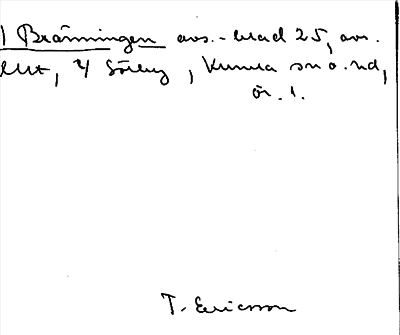 1 Bränningen avs.-blad 25, avs.
litt, 4 Sörby, Kumla sn o. hd,
ör. l.
T. Ericsson